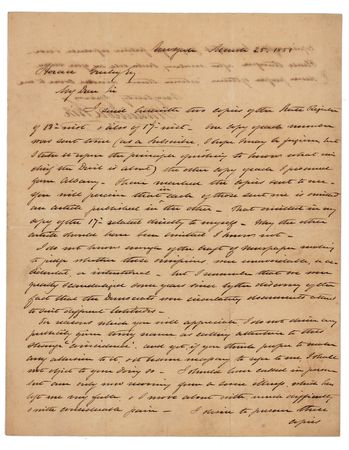 March 25, 1851
Horace Greeley Esq
My Dear Sir
I send herewith two copies of the State Register
of 15th inst & also of 17th inst. One copy of each number
was sent to me (as a Subscriber, I hope I may be forgiven but
I take it upon the principle of wishing to know what mis
the Devil is about) the other copy of each I procured
from Albany. I have marked the copies sent to me.
You will perceive that in each of those sent me is omitted
an article published in the other. That omitted in my
copy of the 17th related directly to myself. Why the other
article should have been omitted I know not.
I do not know enough of the craft of Newspaper making
to judge whether these omissions are unavoidable, ac
cidental or intentional. but I remember that we were
greatly scandalized some years since by the discovery of the
fact that the Democrats were circulating documents altered
to suit different latitudes.
For reasons which you will appreciate I do not desire any
publicity given to my name as calling attention to this
strange "coincidence", and yet if you think proper to make
any allusion to it, & it become necessary to refer to me, I should
not object to your doing so. I should have called in person
but am only now recovering from a severe illness, which has
left me very feeble, & I move about with much difficulty
& with considerable pain. I desire to preserve these
copies